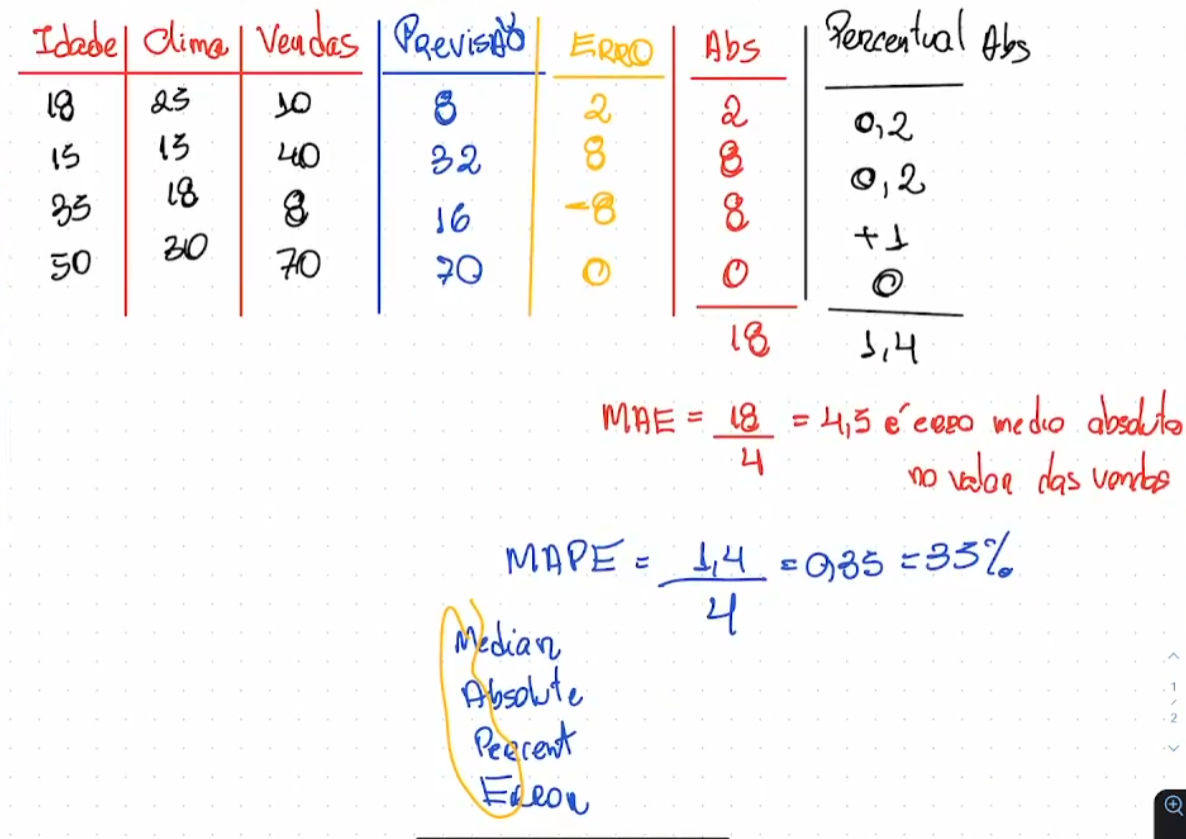 Idade Clima Vendas Previsão Erro Abs Percentual Abs
18 25 10 8 2 2 0,2
15 15 40 32 8 8 0,2
35 18 8 16 -8 8 +1
50 30 70 70 0 0 0
18 1,4
MAE = 18/4 = 4,5 é erro medio absoluto
no valor das vendas
MAPE = 1,4/4 = 0,35 = 35%
Median
Absolute
Percent
Error
1
/
2